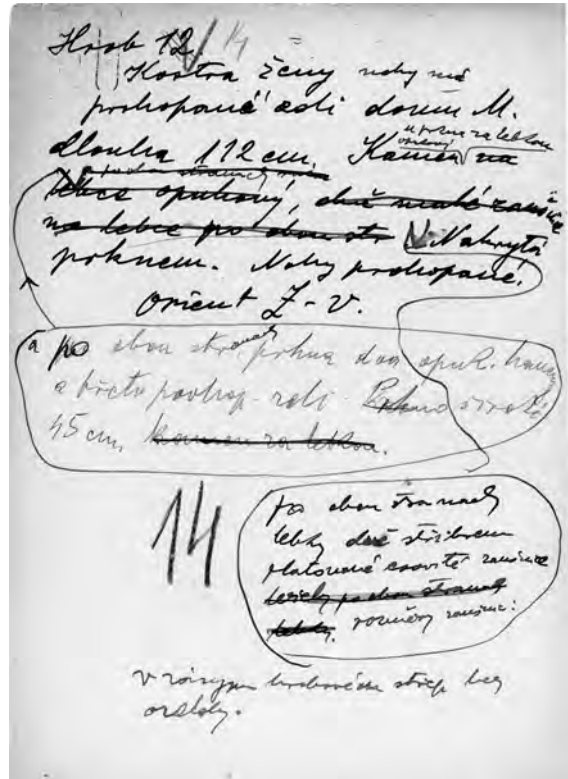 Hrob 12. 14
Kostra ženy nohy má
prokopané zdi domu M.
dlouhá 112 cm. Kámen na
u prkna za lebkou
opukový
po obou stranách
lebce opukový, dvě malé záušnice
na lebce po obou str. Nakrytá
prknem. Nohy prokopané.
Orient Z-V.
a po obou stranách prkna dva opuk. kameny
a třetí podkop. zdi. Prkno široké
45 cm, kamen za lebkou.
14
po obou stranách
lebky dvě stříbrem
platované esovité záušnice
po obou stranách
lebky. rozměry záušnic:
v zásypu hrobovém střep bez
ozdoby.